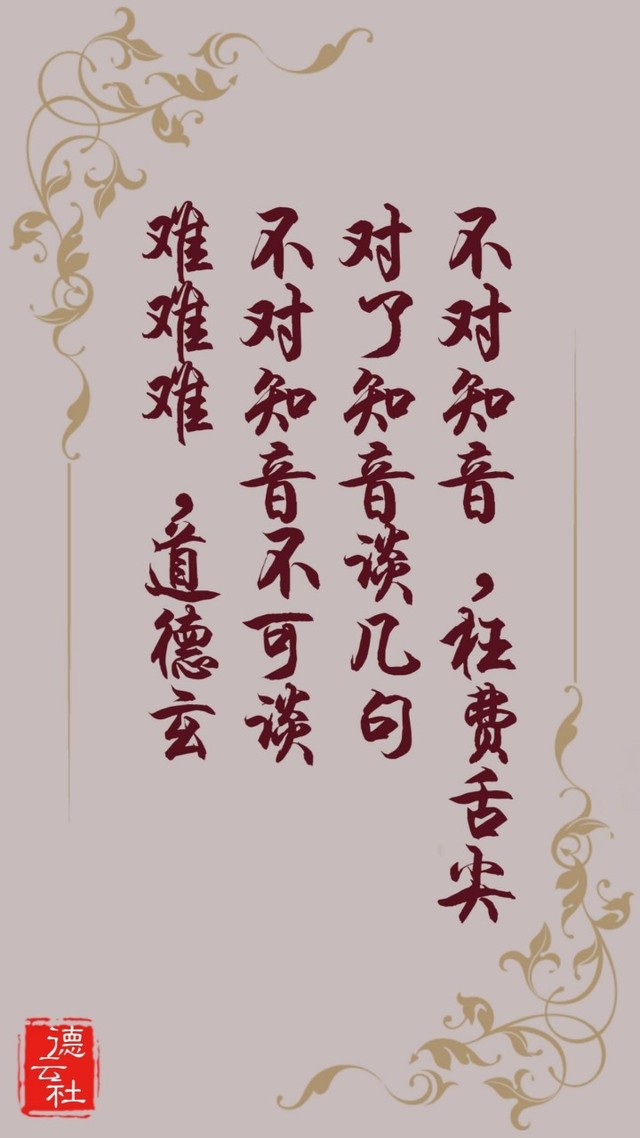 难难难，道德玄
不对知音不可谈
对了知音谈几句
不对知音，枉费舌尖
德云社